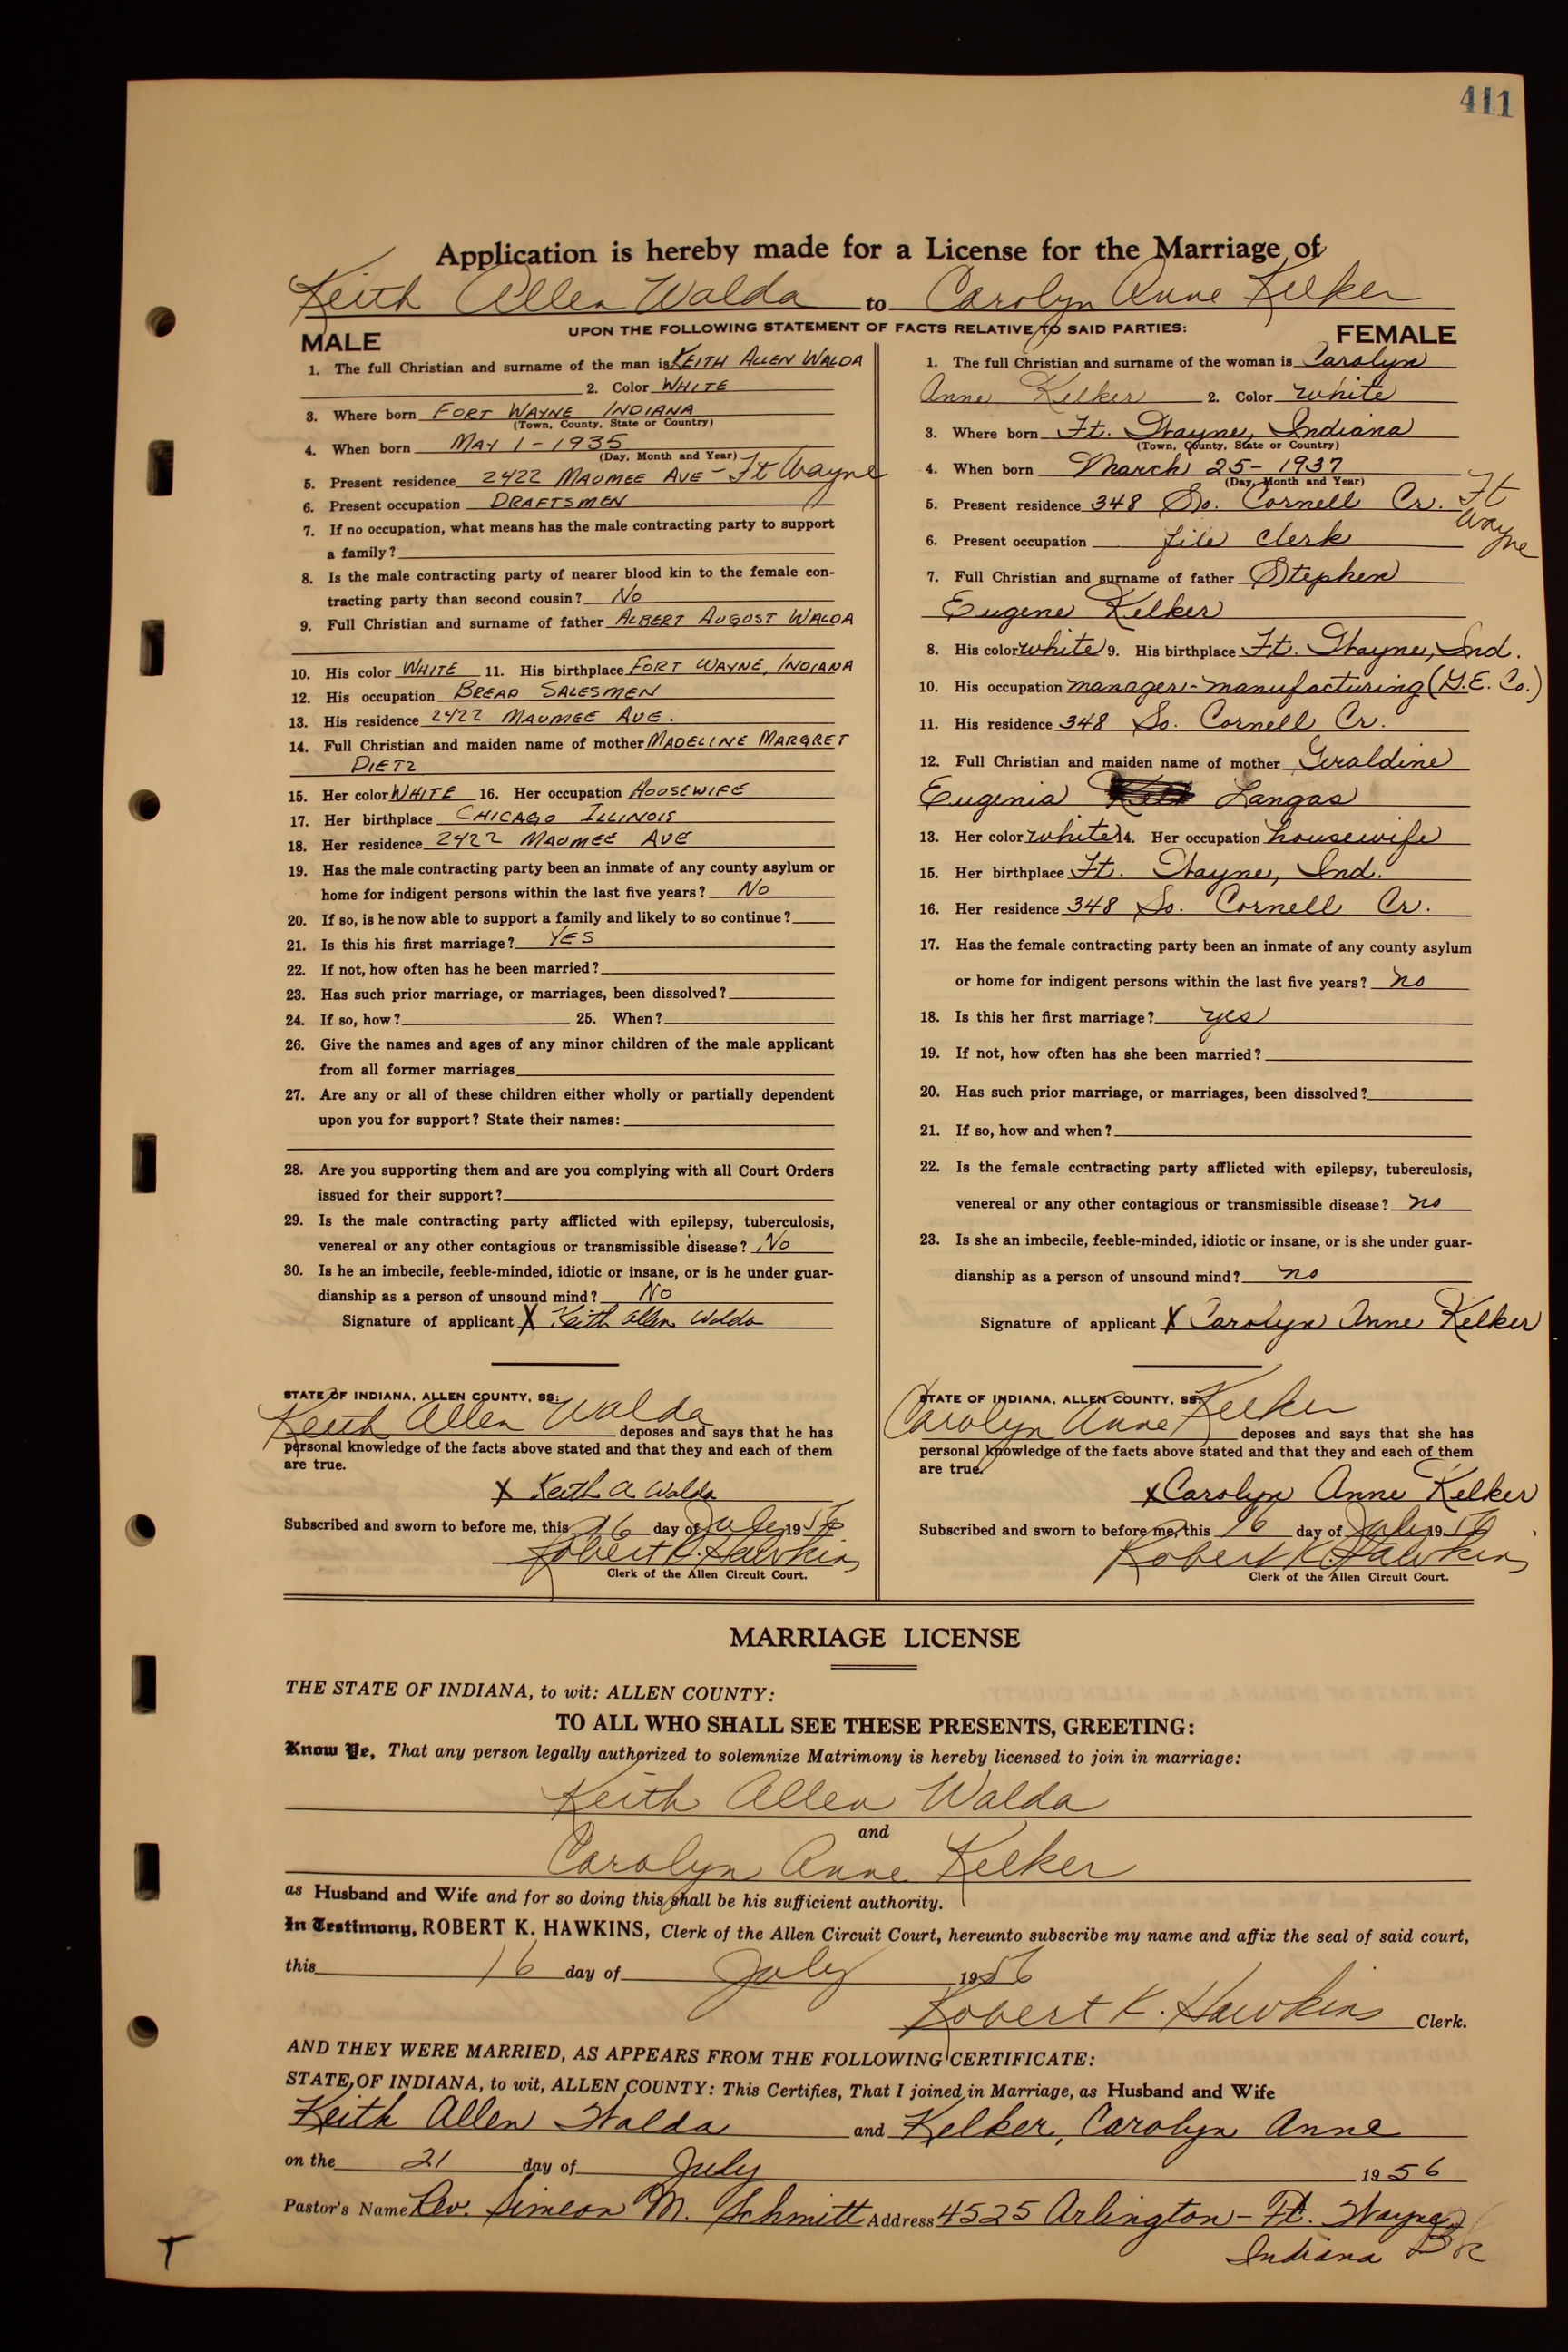 411
Application is hereby made for a License for the Marriage of
Keith Allen Walda to Carolyn Anne Kelker
UPON THE FOLLOWING STATEMENT OF FACTS RELATIVE TO SAID PARTIES:
MALE
1. The full Christian and surname of the man is KEITH ALLEN WALDA
2. Color WHITE
3. Where born FORT WAYNE INDIANA
(Town, County, State or Country)
4. When born MAY 1 - 1935
(Day, Month and Year)
5. Present residence 2422 MAUMEE AVE - Ft Wayne
6. Present occupation DRAFTSMEN
7. If no occupation, what means has the male contracting party to support
a family?
8. Is the male contracting party of nearer blood kin to the female con-
tracting party than second cousin? No
9. Full Christian and surname of father ALBERT AUGUST WALDA
10. His color WHITE 11. His birthplace FORT WAYNE, INDIANA
12. His occupation BREAD SALESMEN
13. His residence 2422 MAUMEE AVE.
14. Full Christian and maiden name of mother MADELINE MARGRET
DIETZ
15. Her color WHITE 16. Her occupation HOUSEWIFE
17. Her birthplace CHICAGO ILLINOIS
18. Her residence 2422 MAUMEE AVE
19. Has the male contracting party been an inmate of any county asylum or
home for indigent persons within the last five years? No
20. If so, is he now able to support a family and likely to so continue?
21. Is this his first marriage? YES
22. If not, how often has he been married?
23. Has such prior marriage, or marriages, been dissolved?
24. If so, how? 25. When?
26. Give the names and ages of any minor children of the male applicant
from all former marriages
27. Are any or all of these children either wholly or partially dependent
upon you for support? State their names:
28. Are you supporting them and are you complying with all Court Orders
issued for their support?
29. Is the male contracting party afflicted with epilepsy, tuberculosis,
venereal or any other contagious or transmissible disease? No
30. Is he an imbecile, feeble-minded, idiotic or insane, or is he under guar-
dianship as a person of unsound mind? No
Signature of applicant X Keith Allen Walda
STATE OF INDIANA, ALLEN COUNTY, SS:
Keith Allen Walda deposes and says that he has
personal knowledge of the facts above stated and that they and each of them
are true.
X Keith A Walda
Subscribed and sworn to before me, this 16 day of July 1956
Robert K. Hawkins
Clerk of the Allen Circuit Court.
FEMALE
1. The full Christian and surname of the woman is Carolyn
Anne Kelker 2. Color white
3. Where born Ft. Wayne, Indiana
(Town, County, State or Country)
4. When born March 25 - 1937
(Day, Month and Year)
5. Present residence 348 So. Cornell Cr. Ft
Wayne
6. Present occupation file clerk
7. Full Christian and surname of father Stephen
Eugene Kelker
8. His color white 9. His birthplace Ft. Wayne, Ind.
10. His occupation manager - manufacturing (G.E. Co.)
11. His residence 348 So. Cornell Cr.
12. Full Christian and maiden name of mother Geraldine
Eugenia Langas
13. Her color white 14. Her occupation housewife
15. Her birthplace Ft. Wayne, Ind.
16. Her residence 348 So. Cornell Cr.
17. Has the female contracting party been an inmate of any county asylum
or home for indigent persons within the last five years? no
18. Is this her first marriage? yes
19. If not, how often has she been married?
20. Has such prior marriage, or marriages, been dissolved?
21. If so, how and when?
22. Is the female contracting party afflicted with epilepsy, tuberculosis,
venereal or any other contagious or transmissible disease? no
23. Is she an imbecile, feeble-minded, idiotic or insane, or is she under guar-
dianship as a person of unsound mind? no
Signature of applicant X Carolyn Anne Kelker
STATE OF INDIANA, ALLEN COUNTY, SS:
Carolyn Anne Kelker deposes and says that she has
personal knowledge of the facts above stated and that they and each of them
are true.
X Carolyn Anne Kelker
Subscribed and sworn to before me, this 16 day of July 1956
Robert K. Hawkins
Clerk of the Allen Circuit Court.
MARRIAGE LICENSE
THE STATE OF INDIANA, to wit: ALLEN COUNTY:
TO ALL WHO SHALL SEE THESE PRESENTS, GREETING:
Know Ye, That any person legally authorized to solemnize Matrimony is hereby licensed to join in marriage:
Keith Allen Walda
and
Carolyn Anne Kelker
as Husband and Wife and for so doing this shall be his sufficient authority.
In Testimony, ROBERT K. HAWKINS, Clerk of the Allen Circuit Court, hereunto subscribe my name and affix the seal of said court,
this 16 day of July 1956
Robert K. Hawkins Clerk.
AND THEY WERE MARRIED, AS APPEARS FROM THE FOLLOWING CERTIFICATE:
STATE OF INDIANA, to wit, ALLEN COUNTY: This Certifies, That I joined in Marriage, as Husband and Wife
Keith Allen Walda and Kelker, Carolyn Anne
on the 21 day of July 1956
Pastor's Name Rev. Simeon M. Schmitt Address 4525 Arlington - Ft. Wayne,
Indiana
T